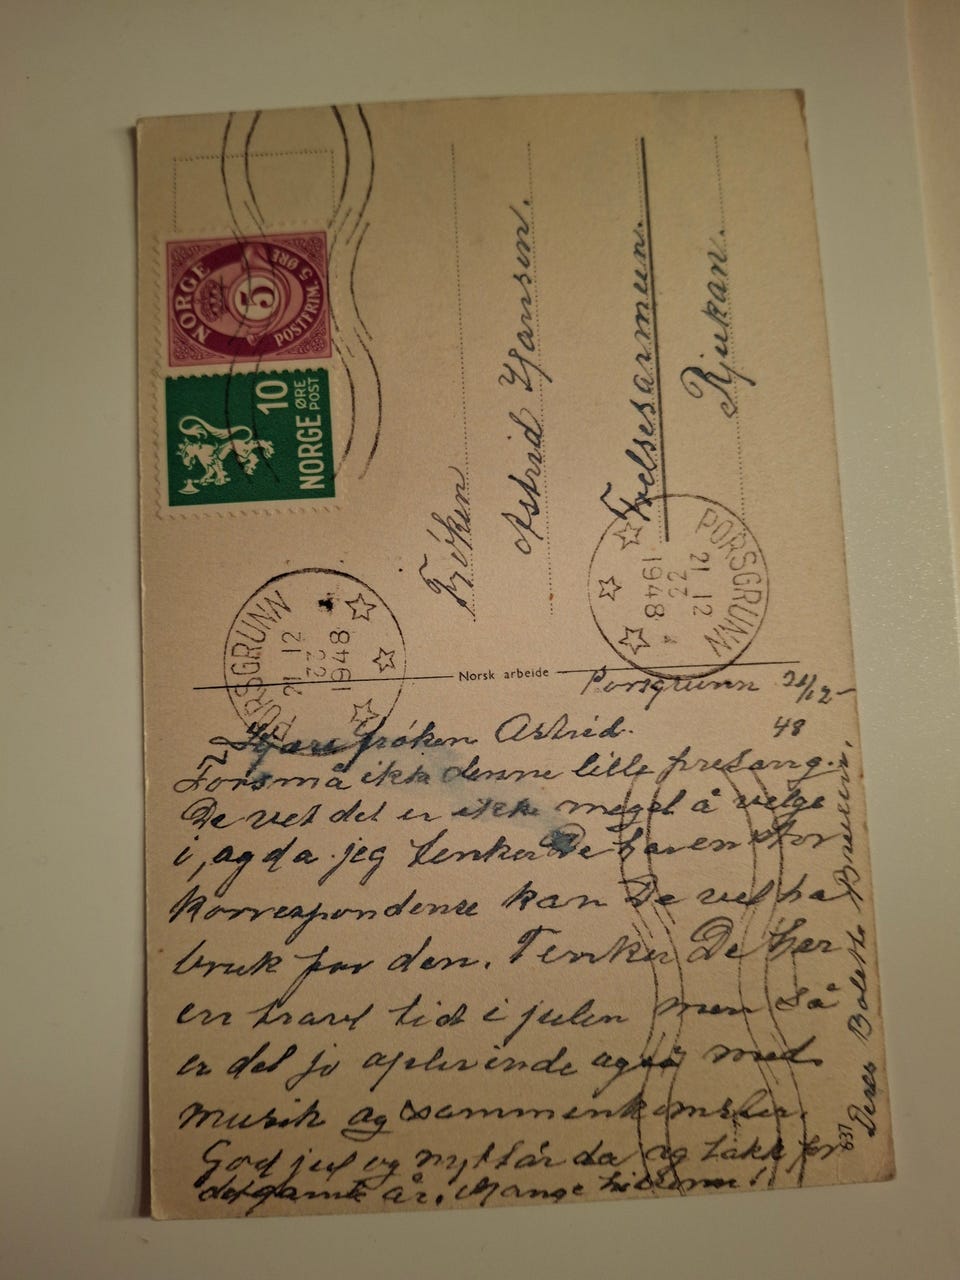 NORGE
5
POSTFRIM. 5 ØRE
10
ØRE
POST
NORGE
PORSGRUNN
21 12
22
1948
PORSGRUNN
21 12
22
1948
Frøken
Astrid Hansen.
Frelsesarmeen.
Rjukan.
Norsk arbeide
Porsgrunn 21/12-
48
Kjære frøken Astrid.
Forsmå ikke denne lille presang.
De vet det er ikke meget å velge
i, og da jeg tenker De har en stor
korrespondense kan De vel ha
bruk for den. Tenker De har
en travl tid i julen men så
er det jo oplivende også med
musik og sammenkomster.
God jul og nyttår da og takk for
det gamle år. Mange hilsener!
Deres Bolette
637